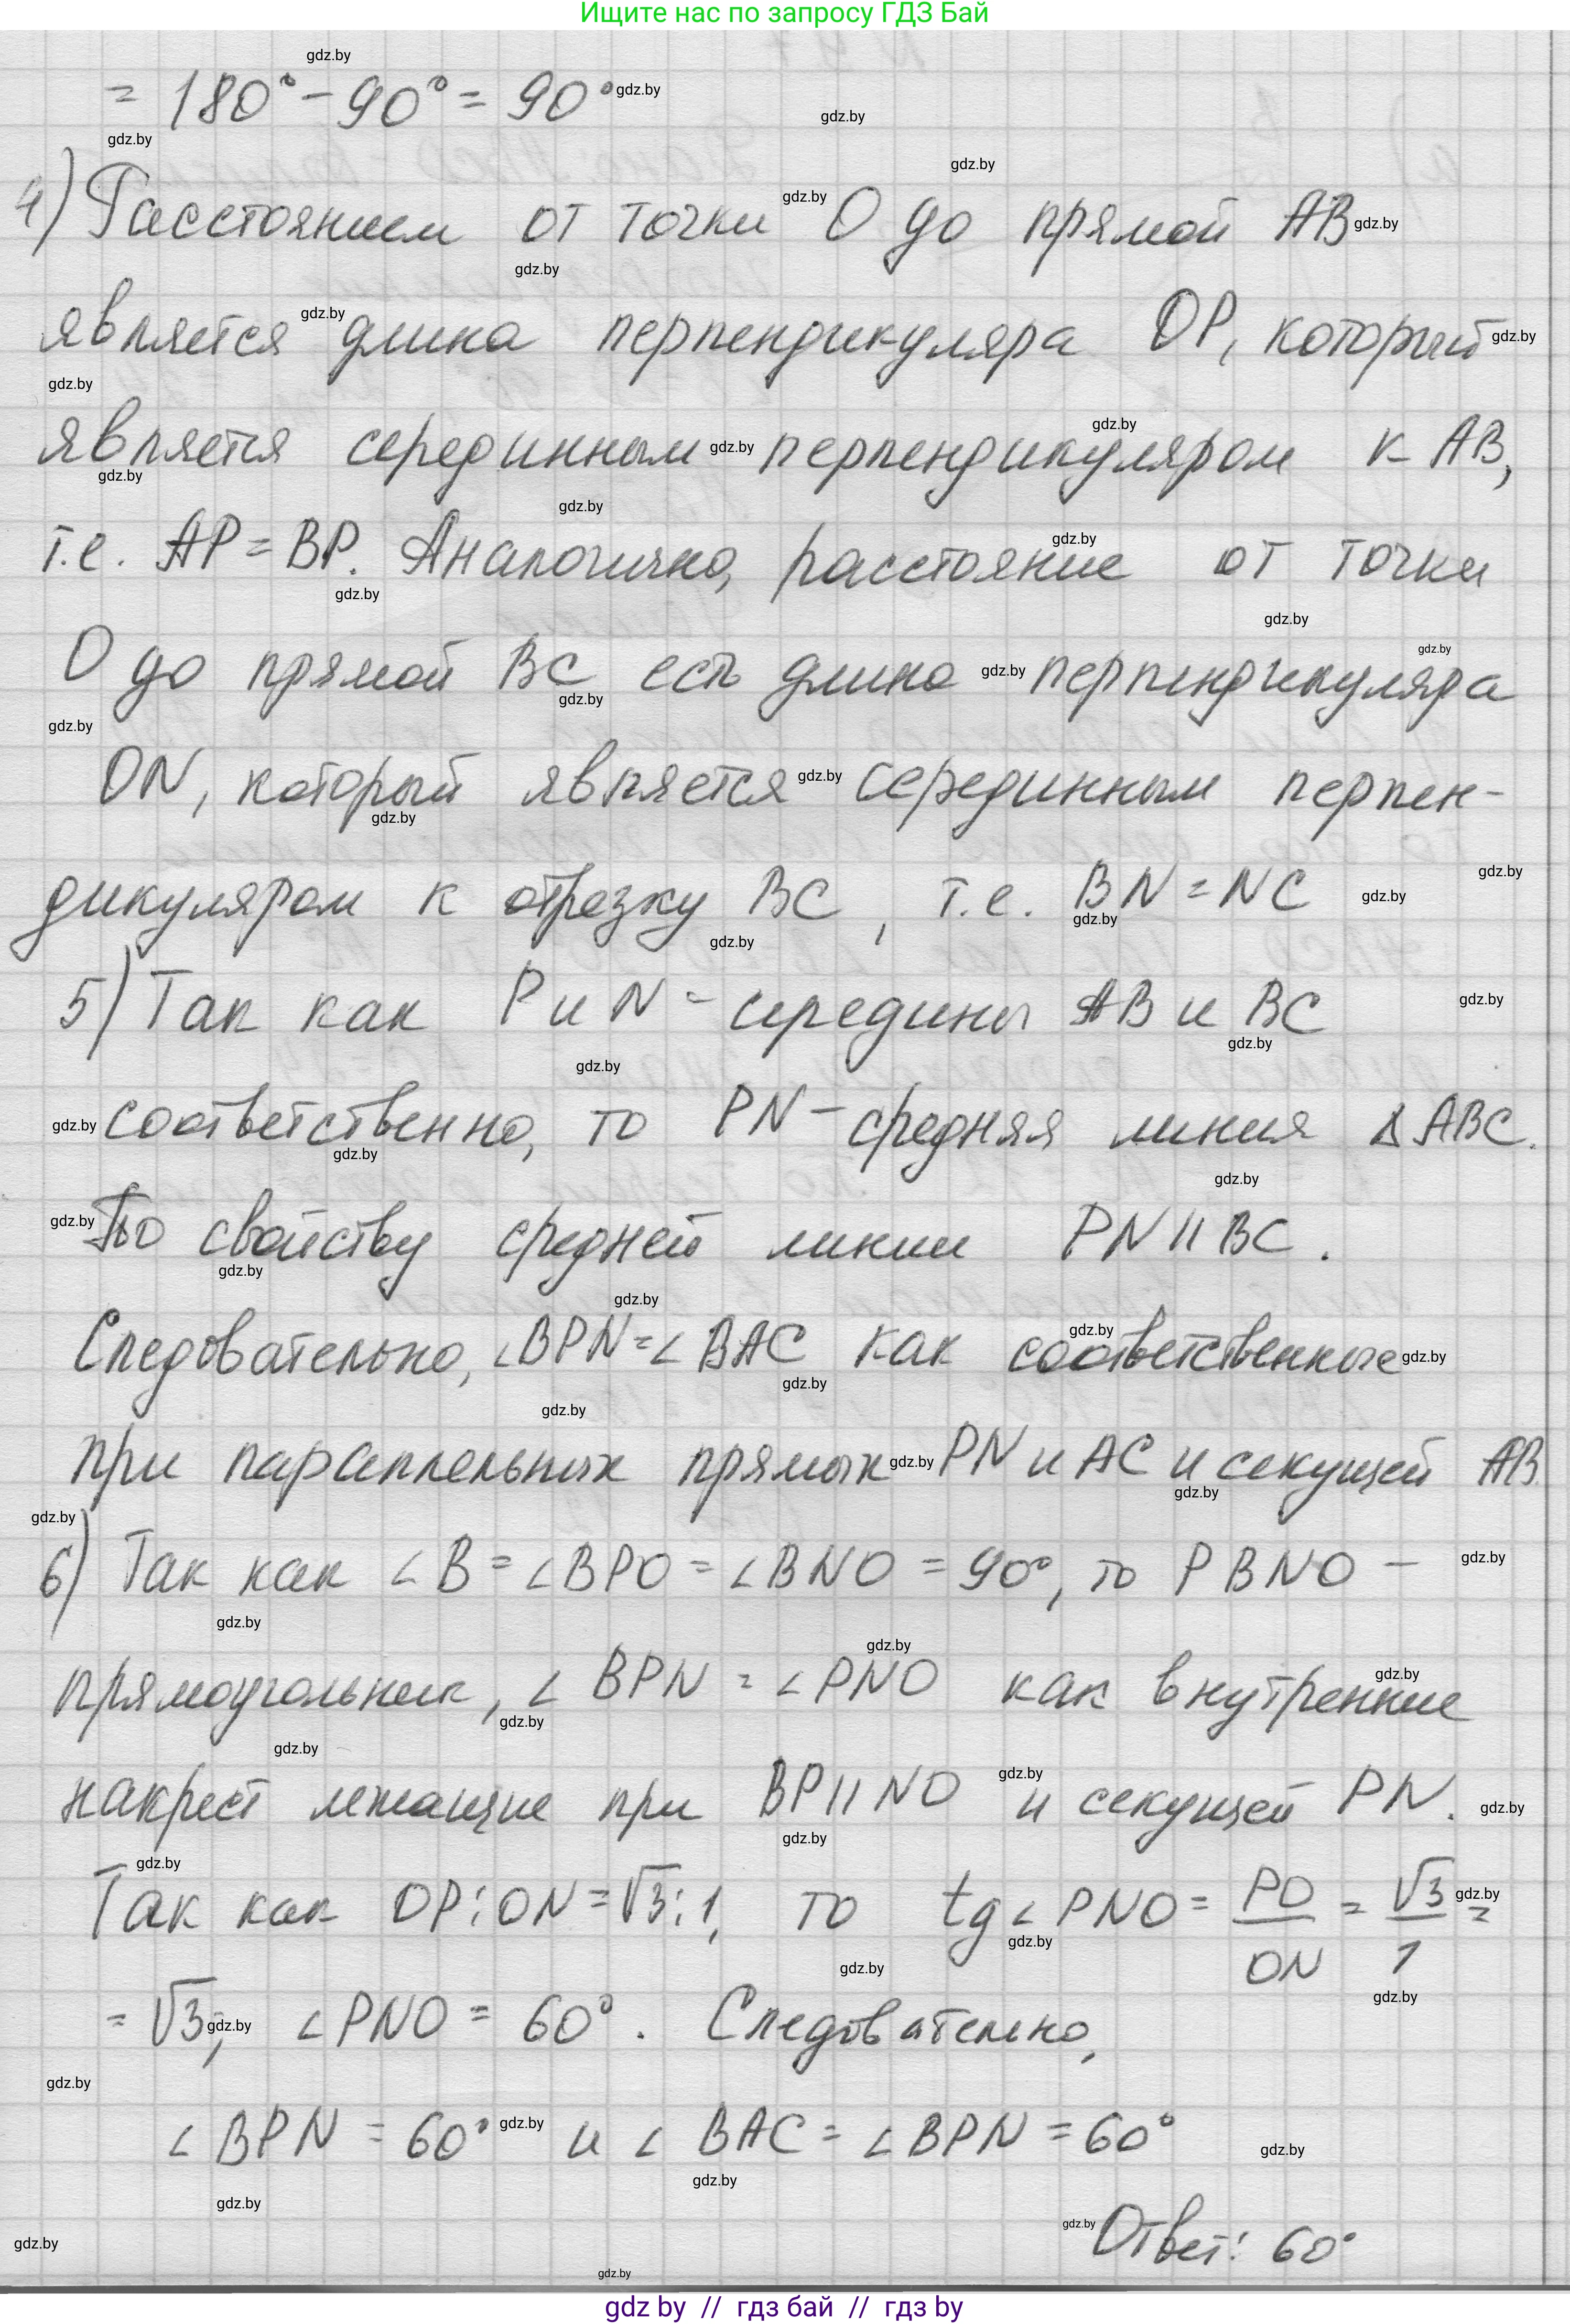 Ищите нас по запросу ГДЗ Бай
= 180° - 90° = 90°
4) Расстоянием от точки О до прямой АВ
является длина перпендикуляра ОР, который
является серединным перпендикуляром к АВ,
т.е. АР = ВР. Аналогично, расстояние от точки
О до прямой ВС есть длина перпендикуляра
ON, который является серединным перпен-
дикуляром к отрезку ВС, т.е. BN = NC
5) Так как Р и N - середины АВ и ВС
соответственно, то PN - средняя линия ΔАВС.
По свойству средней линии PN || BC.
Следовательно, ∠BPN = ∠BAC как соответственные
при параллельных прямых PN и АС и секущей АВ.
6) Так как ∠B = ∠BPO = ∠BNO = 90°, то PBNO -
прямоугольник, ∠BPN = ∠PNO как внутренние
накрест лежащие при BP || NO и секущей PN.
Так как OP : ON = √3 : 1, то tg∠PNO = PO/ON = √3/1 =
= √3, ∠PNO = 60°. Следовательно,
∠BPN = 60° и ∠BAC = ∠BPN = 60°
Ответ: 60°
gdz by // гдз бай // gdz by